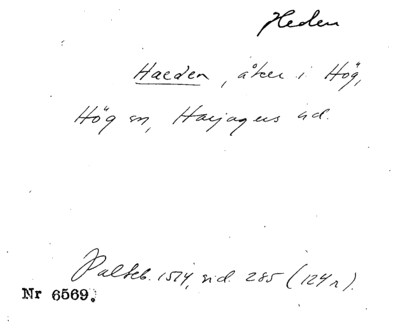 Heden
Haeden, åker i Hög,
Hög sn, Harjagers hd.
Palteb. 1514, sid. 285 (124 r).
Nr 6569.